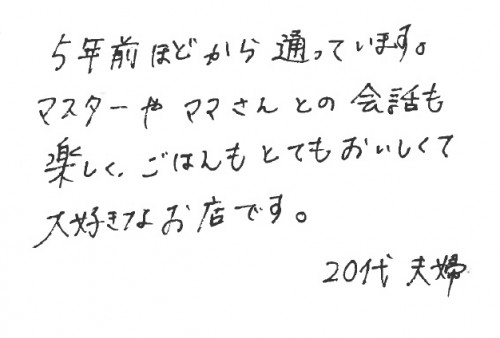 5年前ほどから通っています。
マスターや ママさんとの会話も
楽しく、ごはんもとてもおいしくて
大好きなお店です。
20代 夫婦